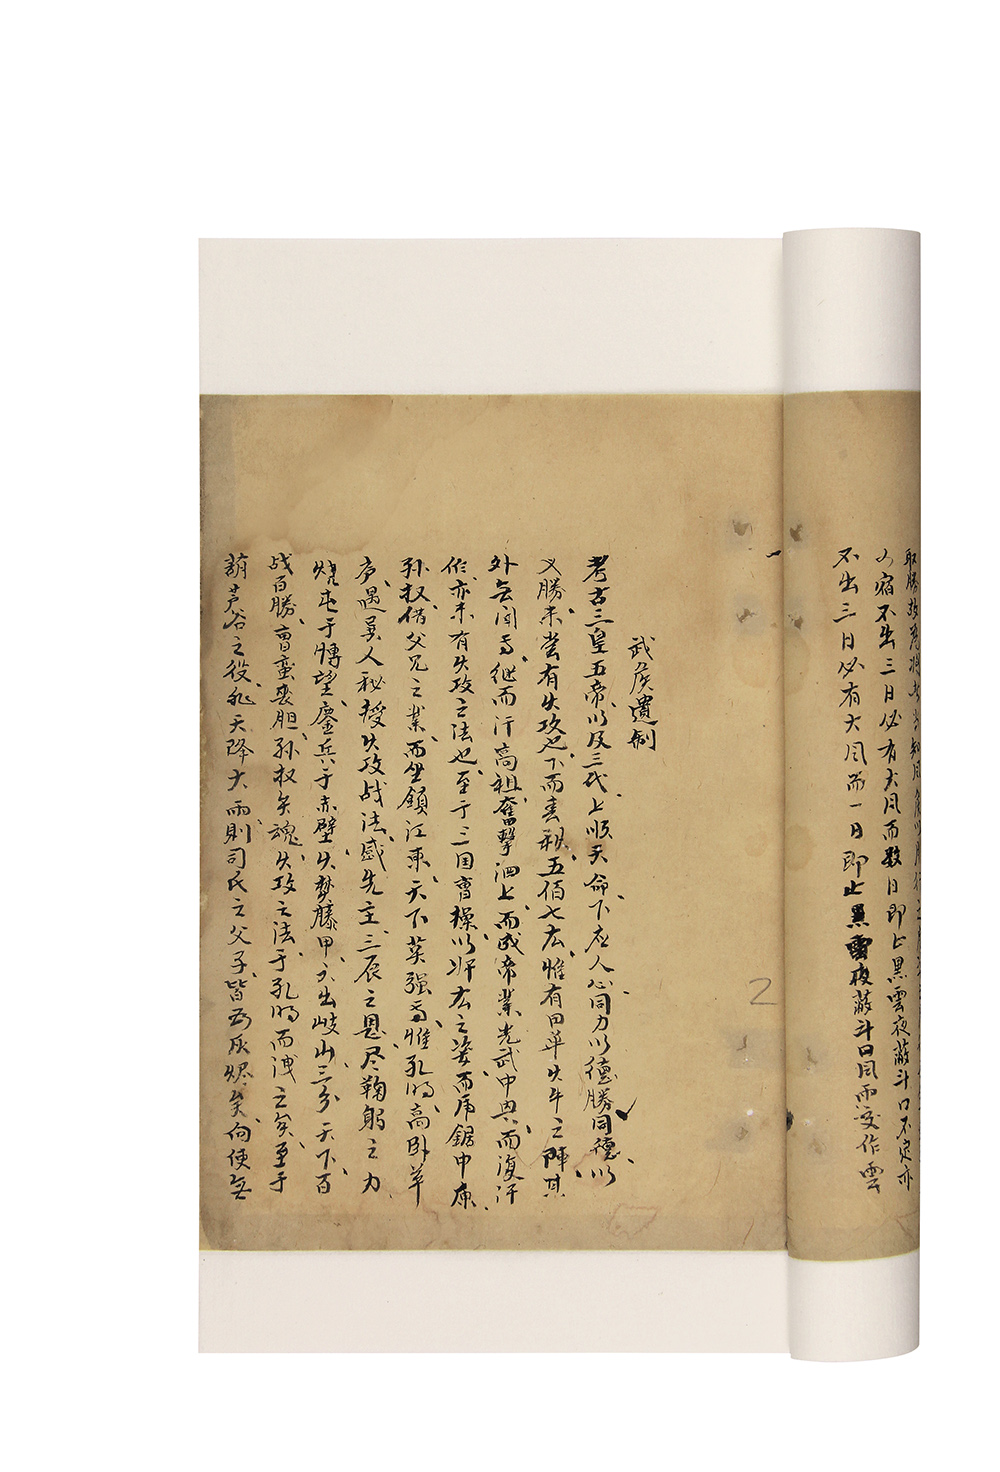 取勝故為將者當知風角以
宿不出三日必有大风而数日即止黒雲夜蔽斗口不定亦
不出三日必有大风而一日即止黒雲夜蔽斗口风雨交作雲
2
武侯遺制
考古三皇五帝以及三代上順天命下应人心同力以德勝同德以
义勝未嘗有火攻也下而春秋五伯七雄惟有田单火牛之陣其
外無闻焉继而汗高祖奮擊泗上而成帝業光武中興而復汗
作亦未有火攻之法也至于三国曹操以奸雄之姿而虎鋸中原
孙权借父兄之業而坐鎮江東天下英强焉惟孔明高卧草
庐遇異人秘授火攻战法感先主三辰之恩尽鞠躬之力
烧屯于博望鏖兵于赤壁火焚藤甲六出岐山三分天下百
战百勝曹蛮丧胆孙权矢魂火攻之法于孔明而洩之矣至于
葫芦谷之役非天降大雨則司氏之父子皆為灰烬矣向使無